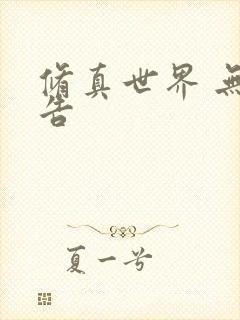 修真世界 無
告
夏一兮